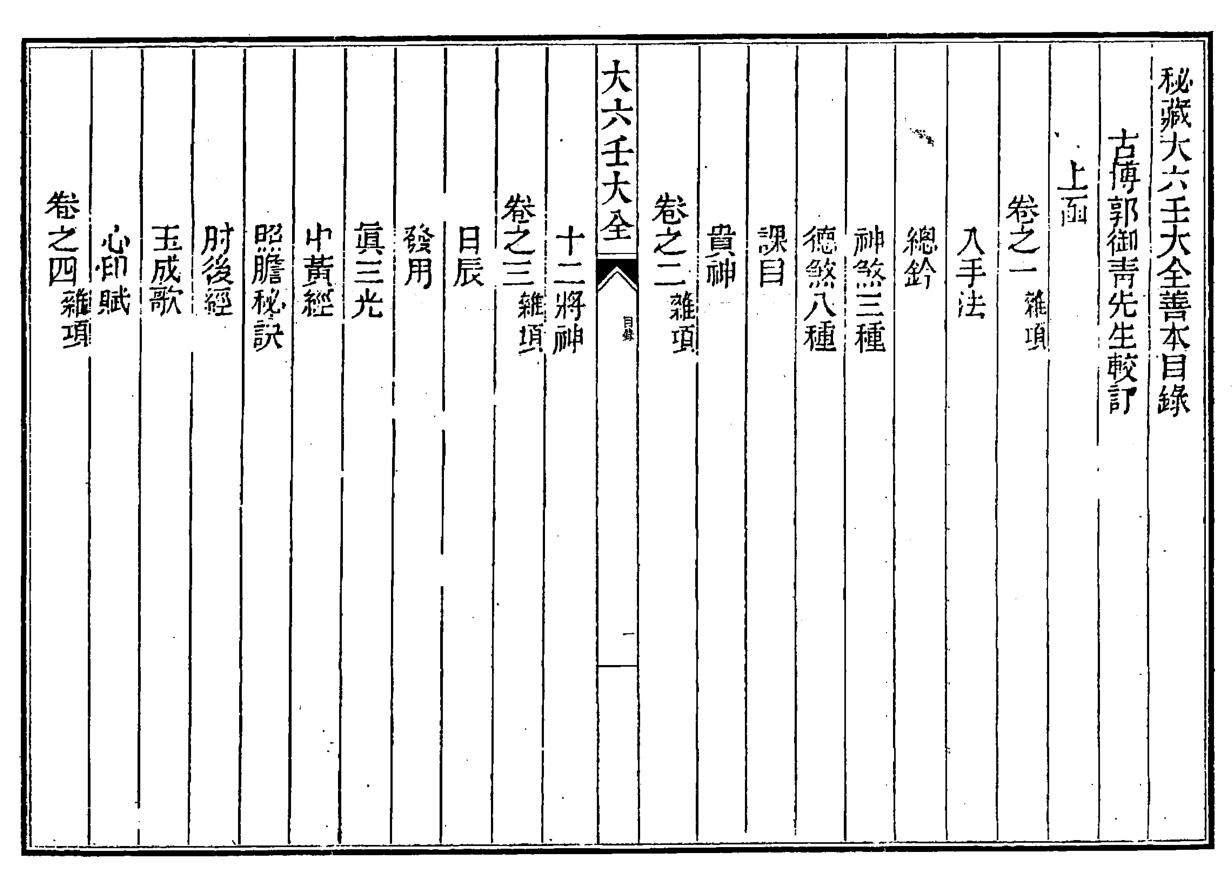 秘藏大六壬大全善本目錄
古博郭御靑先生較訂
上函
卷之一 雜項
入手法
總鈐
神煞三種
德煞八種
課目
貴神
卷之二 雜項
大六壬大全
目錄
一
十二將神
卷之三 雜項
日辰
發用
眞三光
中黃經
照膽秘訣
肘後經
玉成歌
心印賦
卷之四 雜項